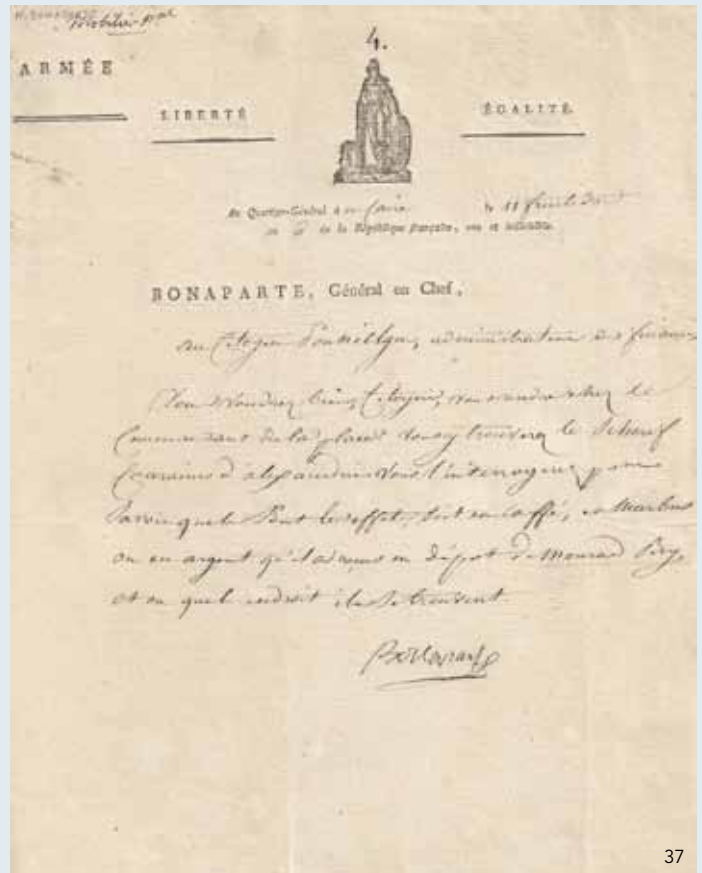 4.
ARMÉE
LIBERTÉ
ÉGALITÉ.
Au Quartier-Général au Caire le 11 fructidor
an 6 de la République française, une et indivisible.
BONAPARTE, Général en Chef,
au Citoyen Poussielgue, administrateur des finances
Vous voudrez bien, Citoyen, vous rendre chez le
Commandant de la place vous y trouverez le Scherif
d'alexandrie vous l'interrogerez pour
savoir quels sont les effets, soit en caffé, en Marbres
ou en argent qu'il a en dépôt de Mourad Bey,
et en quel endroit ils se trouvent
Bonaparte
37